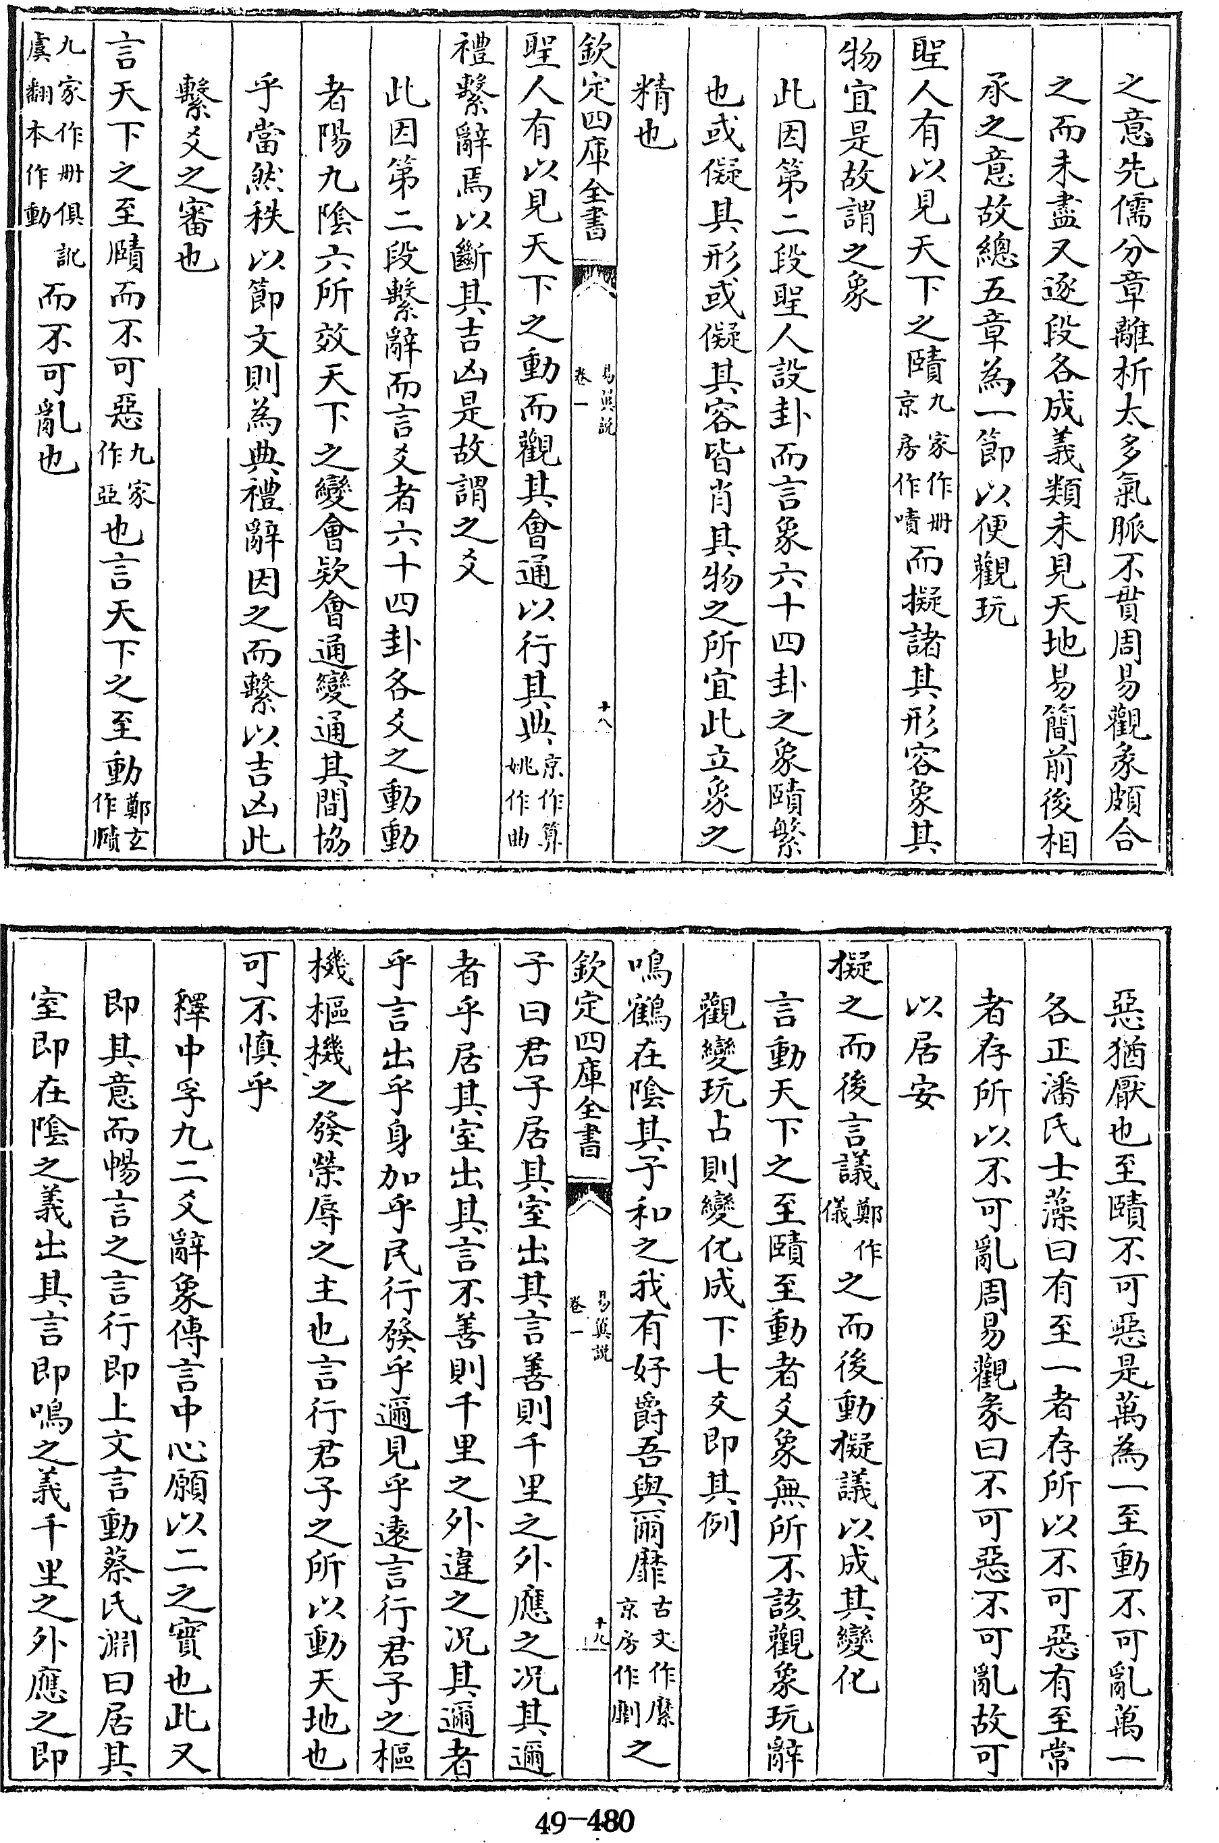 之意先儒分章離析太多氣脈不貫周易觀象頗合
之而未盡又逐段各成義類未見天地易簡前後相
承之意故總五章為一節以便觀玩
聖人有以見天下之賾九家作冊京房作嘖而擬諸其形容象其
物宜是故謂之象
此因第二段聖人設卦而言象六十四卦之象賾繁
也或儗其形或儗其容皆肖其物之所宜此立象之
精也
欽定四庫全書
易翼說
卷一
十八
聖人有以見天下之動而觀其會通以行其典京作算姚作曲
禮繫辭焉以斷其吉凶是故謂之爻
此因第二段繫辭而言爻者六十四卦各爻之動動
者陽九陰六所效天下之變會歟會通變通其間協
乎當然秩以節文則為典禮辭因之而繫以吉凶此
繫爻之審也
言天下之至賾而不可惡九家作亞也言天下之至動鄭玄作賾
九家作冊俱訛虞翻本作動而不可亂也
惡猶厭也至賾不可惡是萬為一至動不可亂萬一
各正潘氏士藻曰有至一者存所以不可惡有至常
者存所以不可亂周易觀彖曰不可惡不可亂故可
以居安
擬之而後言議鄭作儀之而後動擬議以成其變化
言動天下之至賾至動者爻象無所不該觀象玩辭
觀變玩占則變化成下七爻即其例
鳴鶴在陰其子和之我有好爵吾與爾靡古文作縻京房作劘之
欽定四庫全書
易翼說
卷一
十九
子曰君子居其室出其言善則千里之外應之況其邇
者乎居其室出其言不善則千里之外違之況其邇者
乎言出乎身加乎民行發乎邇見乎遠言行君子之樞
機樞機之發榮辱之主也言行君子之所以動天地也
可不慎乎
釋中孚九二爻辭象傳言中心願以二之實也此又
即其意而暢言之言行即上文言動蔡氏淵曰居其
室即在陰之義出其言即鳴之義千里之外應之即
49-480